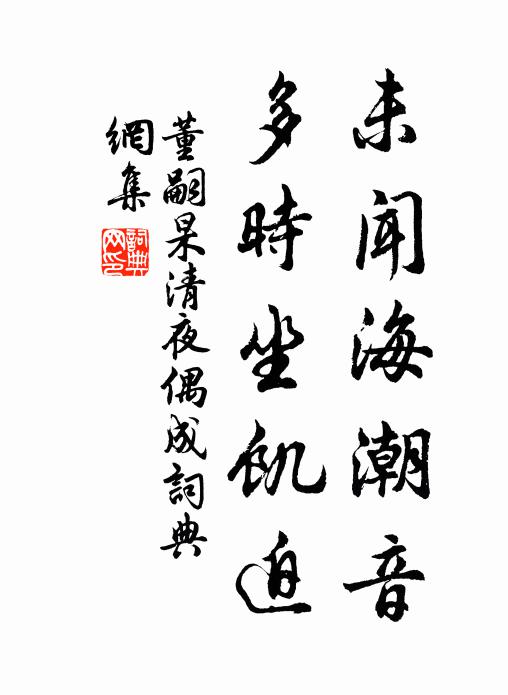 未聞海潮音
多時坐飢迫
董嗣杲清夜偶成詞典
網集
詞典網印